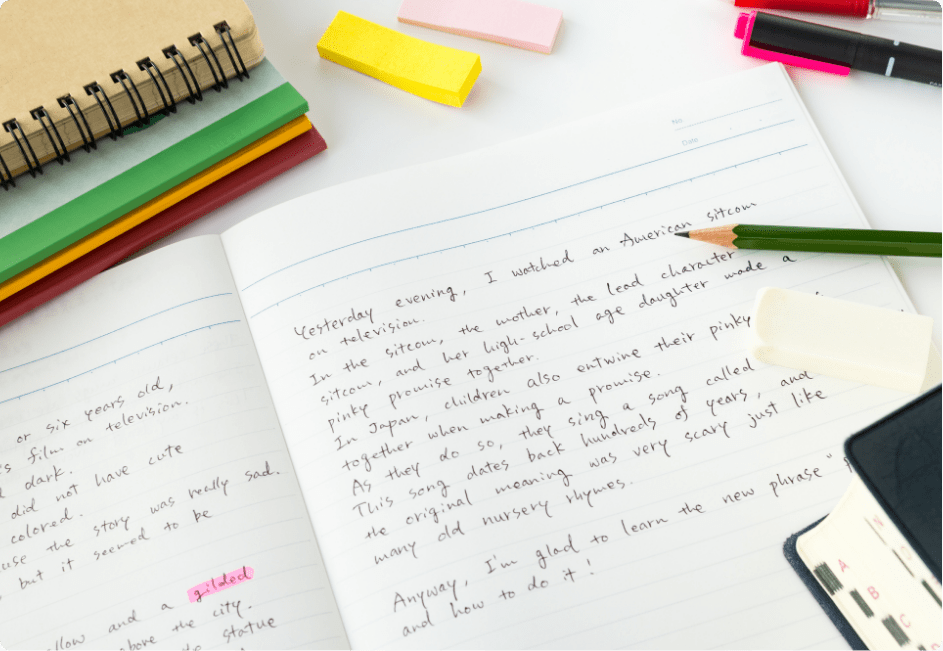 or six years old,
film on television.
dark.
did not have cute
colored.
use the story was really sad.
but it seemed to be
and a gilded
above the city.
to statue
No.
Date
Yesterday evening, I watched an American sitcom
on television.
In the sitcom, the mother, the lead character
sitcom, and her high-school age daughter made a
pinky promise together.
In Japan, children also entwine their pinky
together when making a promise.
As they do so, they sing a song called
This song dates back hundreds of years, and
the original meaning was very scary just like
many old nursery rhymes.
Anyway, I'm glad to learn the new phrase "
and how to do it!
N
A
B
C
D